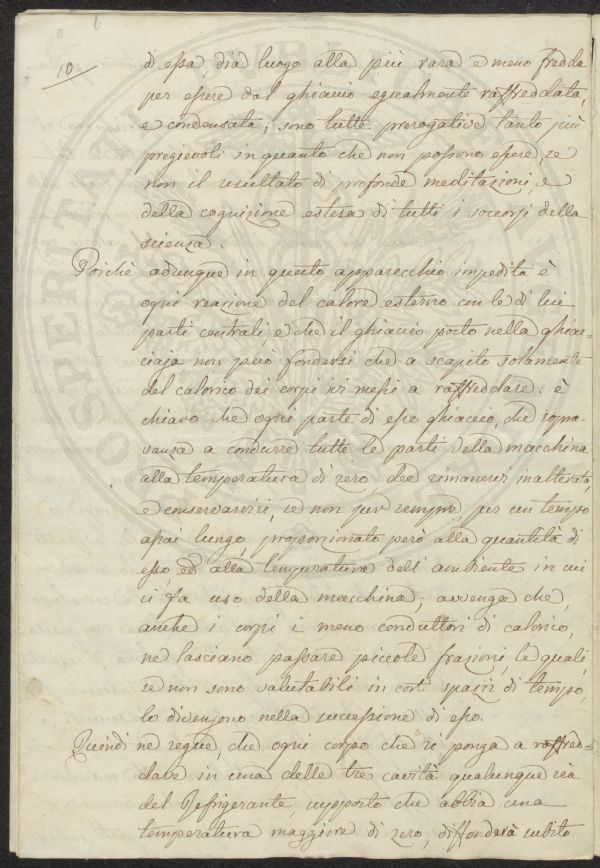 10
di essa, dia luogo alla più rara e meno fredda
per essere dal ghiaccio egualmente raffreddata,
e condensata; sono tutte prerogative tanto più
pregievoli in quanto che non possono essere, se
non il resultato di profonde meditazioni, e
della cognizione estesa di tutti i soccorsi della
scienza.
Poichè adunque in questo apparecchio impedita è
ogni reazione del calore esterno con le di lui
parti centrali e che il ghiaccio posto nella ghiac=
ciaja non può fondersi che a scapito solamente
del calorico dei corpi ivi messi a raffreddare: è
chiaro che ogni parte di esso ghiaccio, che sopra-
vanza a condurre tutte le parti della macchina
alla temperatura di zero, dee rimanervi inalterata,
e conservarvisi, se non per sempre, per un tempo
assai lungo, proporzionato però alla quantità di
esso, ed alla temperatura dell'ambiente in cui
si fa uso della macchina; avvenga che,
anche i corpi i meno conduttori di calorico,
ne lasciano passare piccole frazioni le quali,
se non sono valutabili in corti spazzi di tempo,
lo divengono nella successione di esso.
Quindi ne segue, che ogni corpo che si ponga a raffred=
dare in una delle tre cavità qualunque sia
del Refrigerante, supposto che abbia una
temperatura maggiore di zero, diffonderà subito